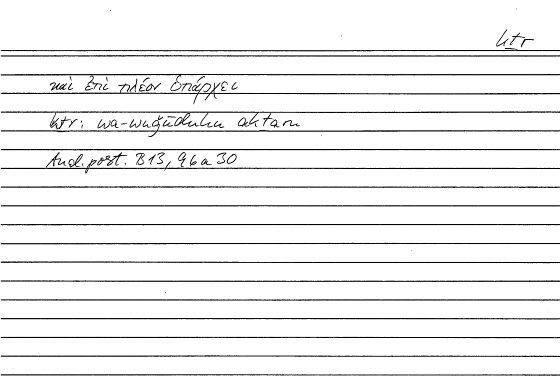 kṯr
καὶ ἐπὶ πλέον ὑπάρχει
kṯr: wa-wuǧūduhu akṯaru
And.post. B13, 96a30